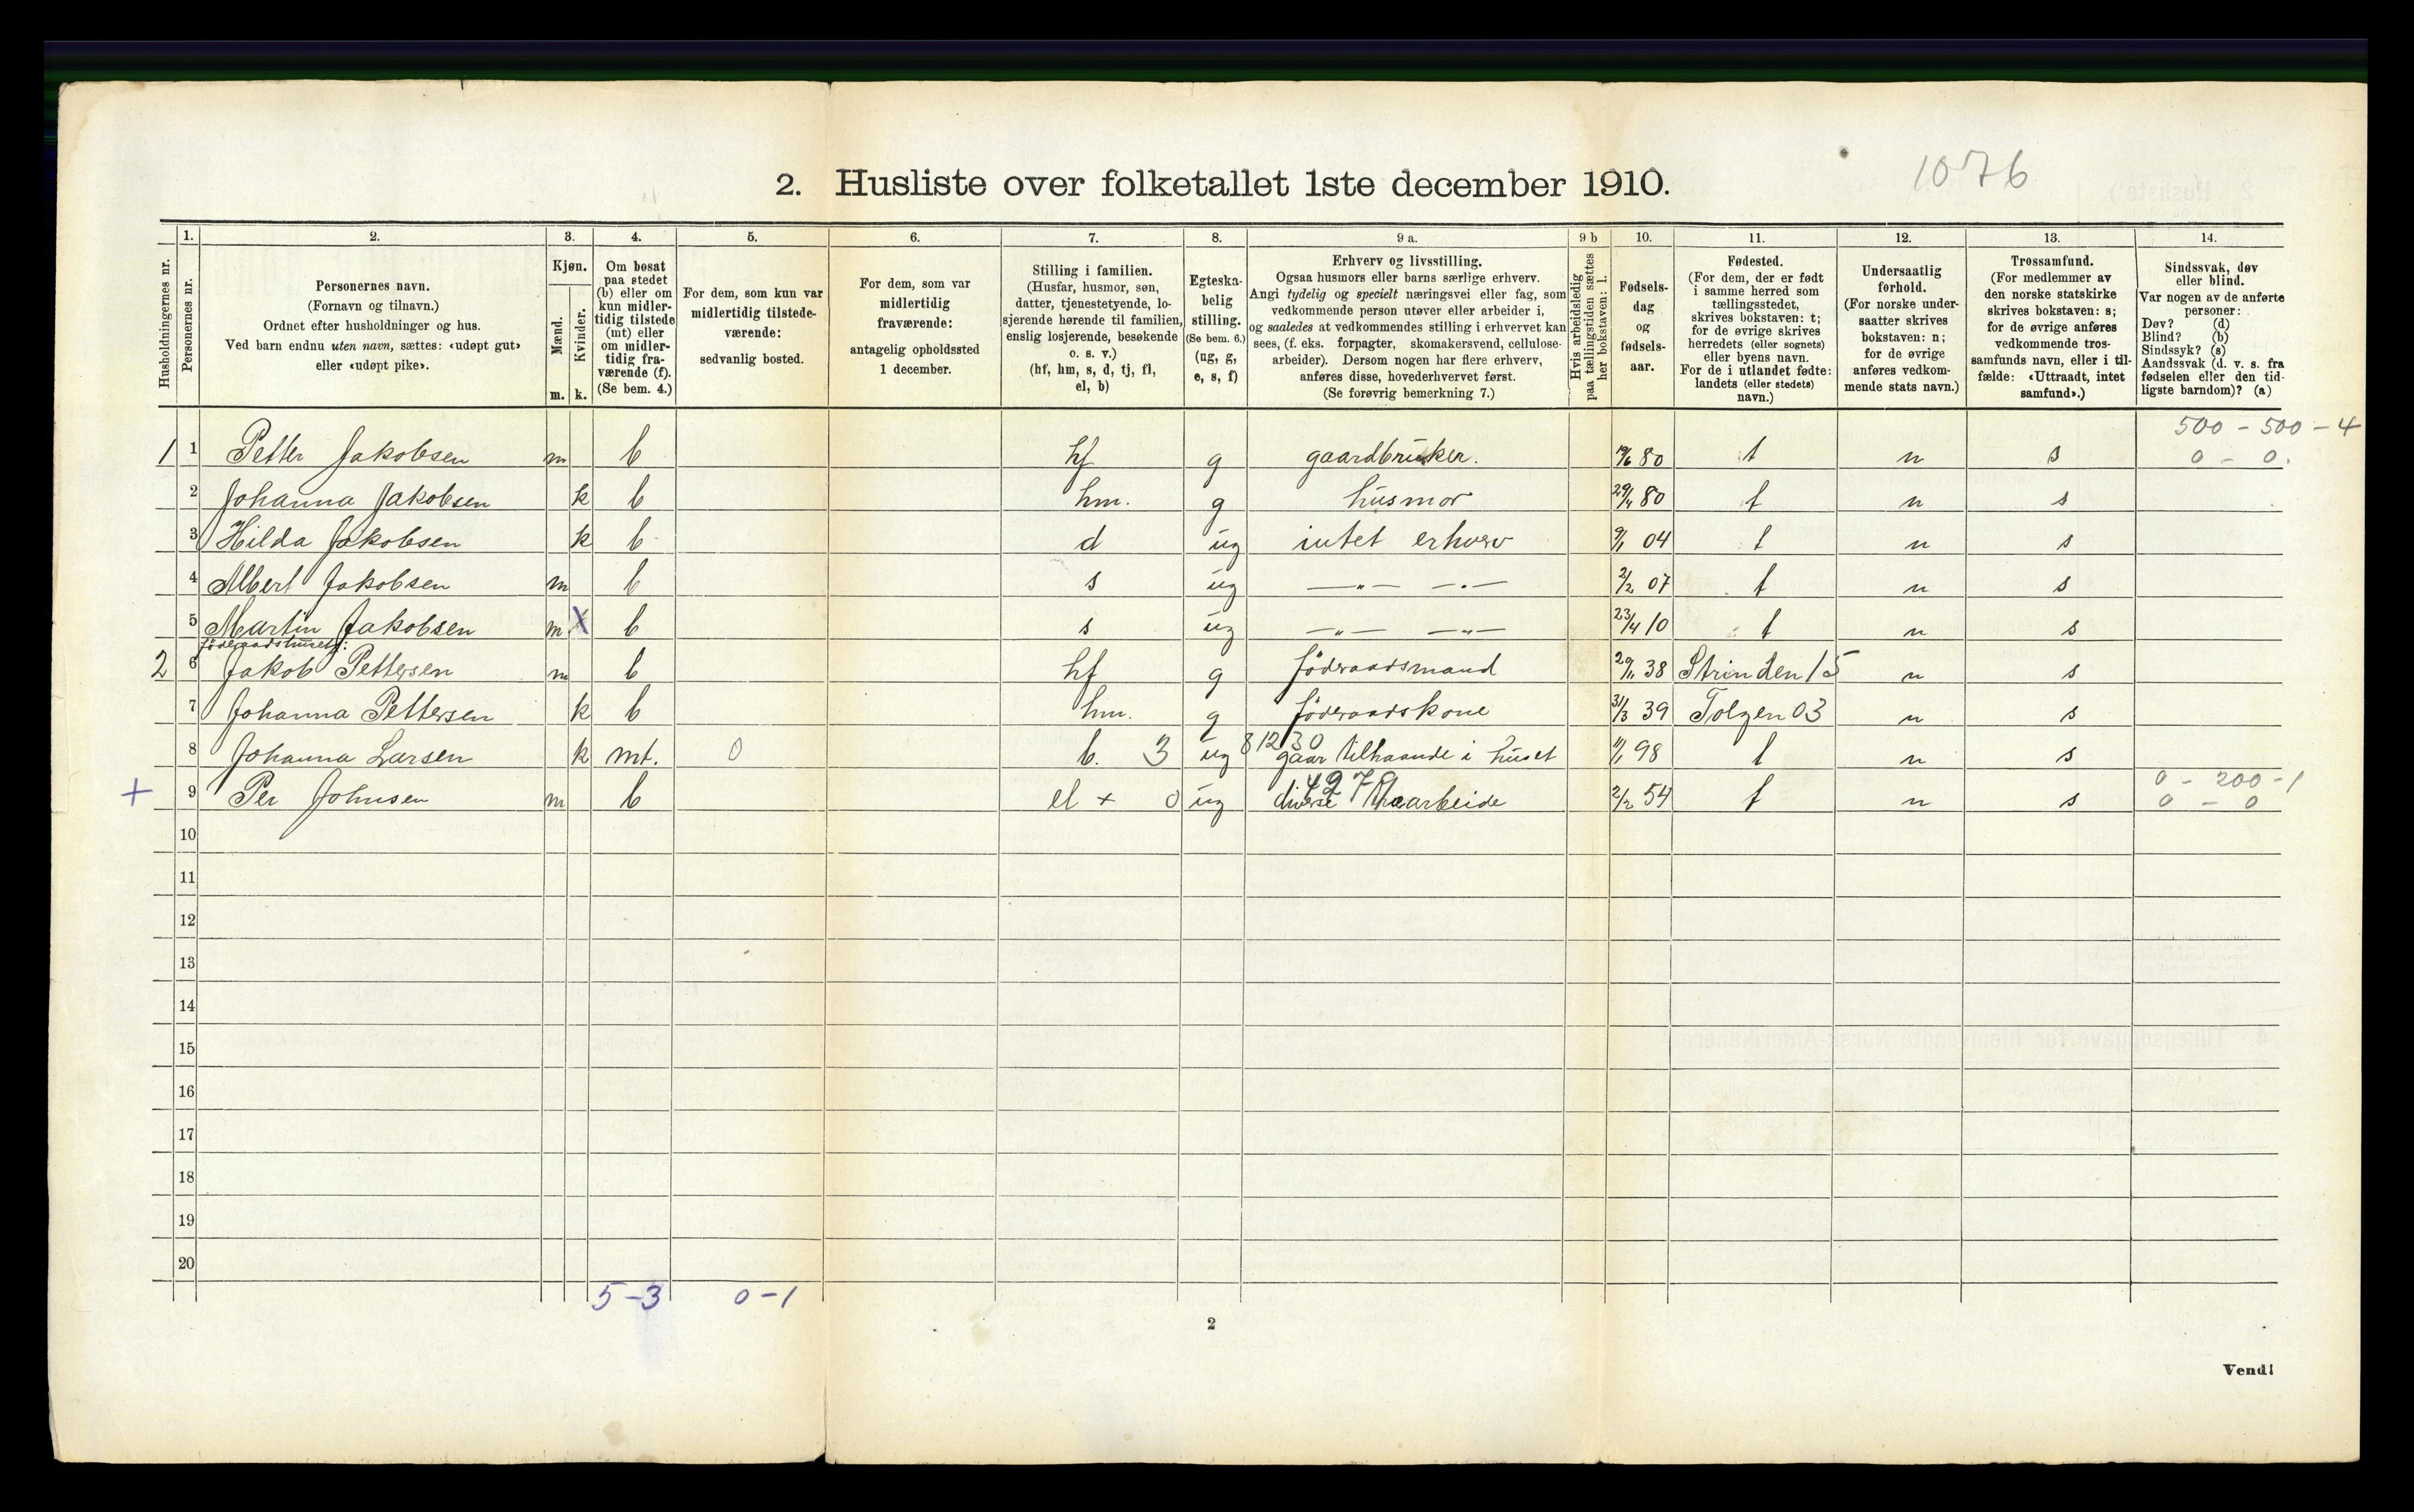 2. Husliste over folketallet 1ste december 1910.
1076
Husholdningernes nr.
1.
Personernes nr.
2.
Personernes navn.
(Fornavn og tilnavn.)
Ordnet efter husholdninger og hus.
Ved barn endnu uten navn, sættes: «udøpt gut»
eller «udøpt pike».
3.
Kjøn.
Mænd.
Kvinder.
m. k.
4.
Om bosat
paa stedet
(b) eller om
kun midler-
tidig tilstede
(mt) eller
om midler-
tidig fra-
værende (f).
(Se bem. 4.)
5.
For dem, som kun var
midlertidig tilstede-
værende:
sedvanlig bosted.
6.
For dem, som var
midlertidig
fraværende:
antagelig opholdssted
1 december.
7.
Stilling i familien.
(Husfar, husmor, søn,
datter, tjenestetyende, lo-
sjerende hørende til familien,
enslig losjerende, besøkende
o. s. v.)
(hf, hm, s, d, tj, fl,
el, b)
8.
Egteska-
belig
stilling.
(Se bem. 6.)
(ug, g,
e, s, f)
9 a.
Erhverv og livsstilling.
Ogsaa husmors eller barns særlige erhverv.
Angi tydelig og specielt næringsvei eller fag, som
vedkommende person utøver eller arbeider i,
og saaledes at vedkommendes stilling i erhvervet kan
sees, (f. eks. forpagter, skomakersvend, cellulose-
arbeider). Dersom nogen har flere erhverv,
anføres disse, hovederhvervet først.
(Se forøvrig bemerkning 7.)
9 b
Hvis arbeidsledig
paa tællingstiden sættes
her bokstaven: l.
10.
Fødsels-
dag
og
fødsels-
aar.
11.
Fødested.
(For dem, der er født
i samme herred som
tællingsstedet,
skrives bokstaven: t;
for de øvrige skrives
herredets (eller sognets)
eller byens navn.
For de i utlandet fødte:
landets (eller stedets)
navn.)
12.
Undersaatlig
forhold.
(For norske under-
saatter skrives
bokstaven: n;
for de øvrige
anføres vedkom-
mende stats navn.)
13.
Trossamfund.
(For medlemmer av
den norske statskirke
skrives bokstaven: s;
for de øvrige anføres
vedkommende tros-
samfunds navn, eller i til-
fælde: «Uttraadt, intet
samfund».)
14.
Sindssvak, døv
eller blind.
Var nogen av de anførte
personer:
Døv? (d)
Blind? (b)
Sindssyk? (s)
Aandssvak (d. v. s. fra
fødselen eller den tid-
ligste barndom)? (a)
500 - 500 - 4
1 1 Petter Jakobsen m b hf g gaardbruker. 19/6 80 t n s 0 - 0.
2 Johanna Jakobsen k b hm. g husmor 29/4 80 t n s
3 Hilda Jakobsen k b d ug intet erhverv 9/1 04 t n s
4 Albert Jakobsen m b s ug —„— —„— 2/2 07 t n s
5 Martin Jakobsen m X b s ug —„— —„— 23/4 10 t n s
föderaadshuset:
2 6 Jakob Pettersen m b hf g föderaadsmand 29/11 38 Strinden 15 n s
7 Johanna Pettersen k b hm. g föderaadskone 31/3 39 Tolgen 03 n s
81230
8 Johanna Larsen k mt. 0 b. 3 ug gaar tilhaande i huset 11/1 98 t n s
4979 0 - 200 - 1
+ 9 Per Johnsen m b el + 0 ug diverse smaarbeide 2/2 54 t n s 0 - 0
10
11
12
13
14
15
16
17
18
19
20
5-3 0-1
2
Vend!